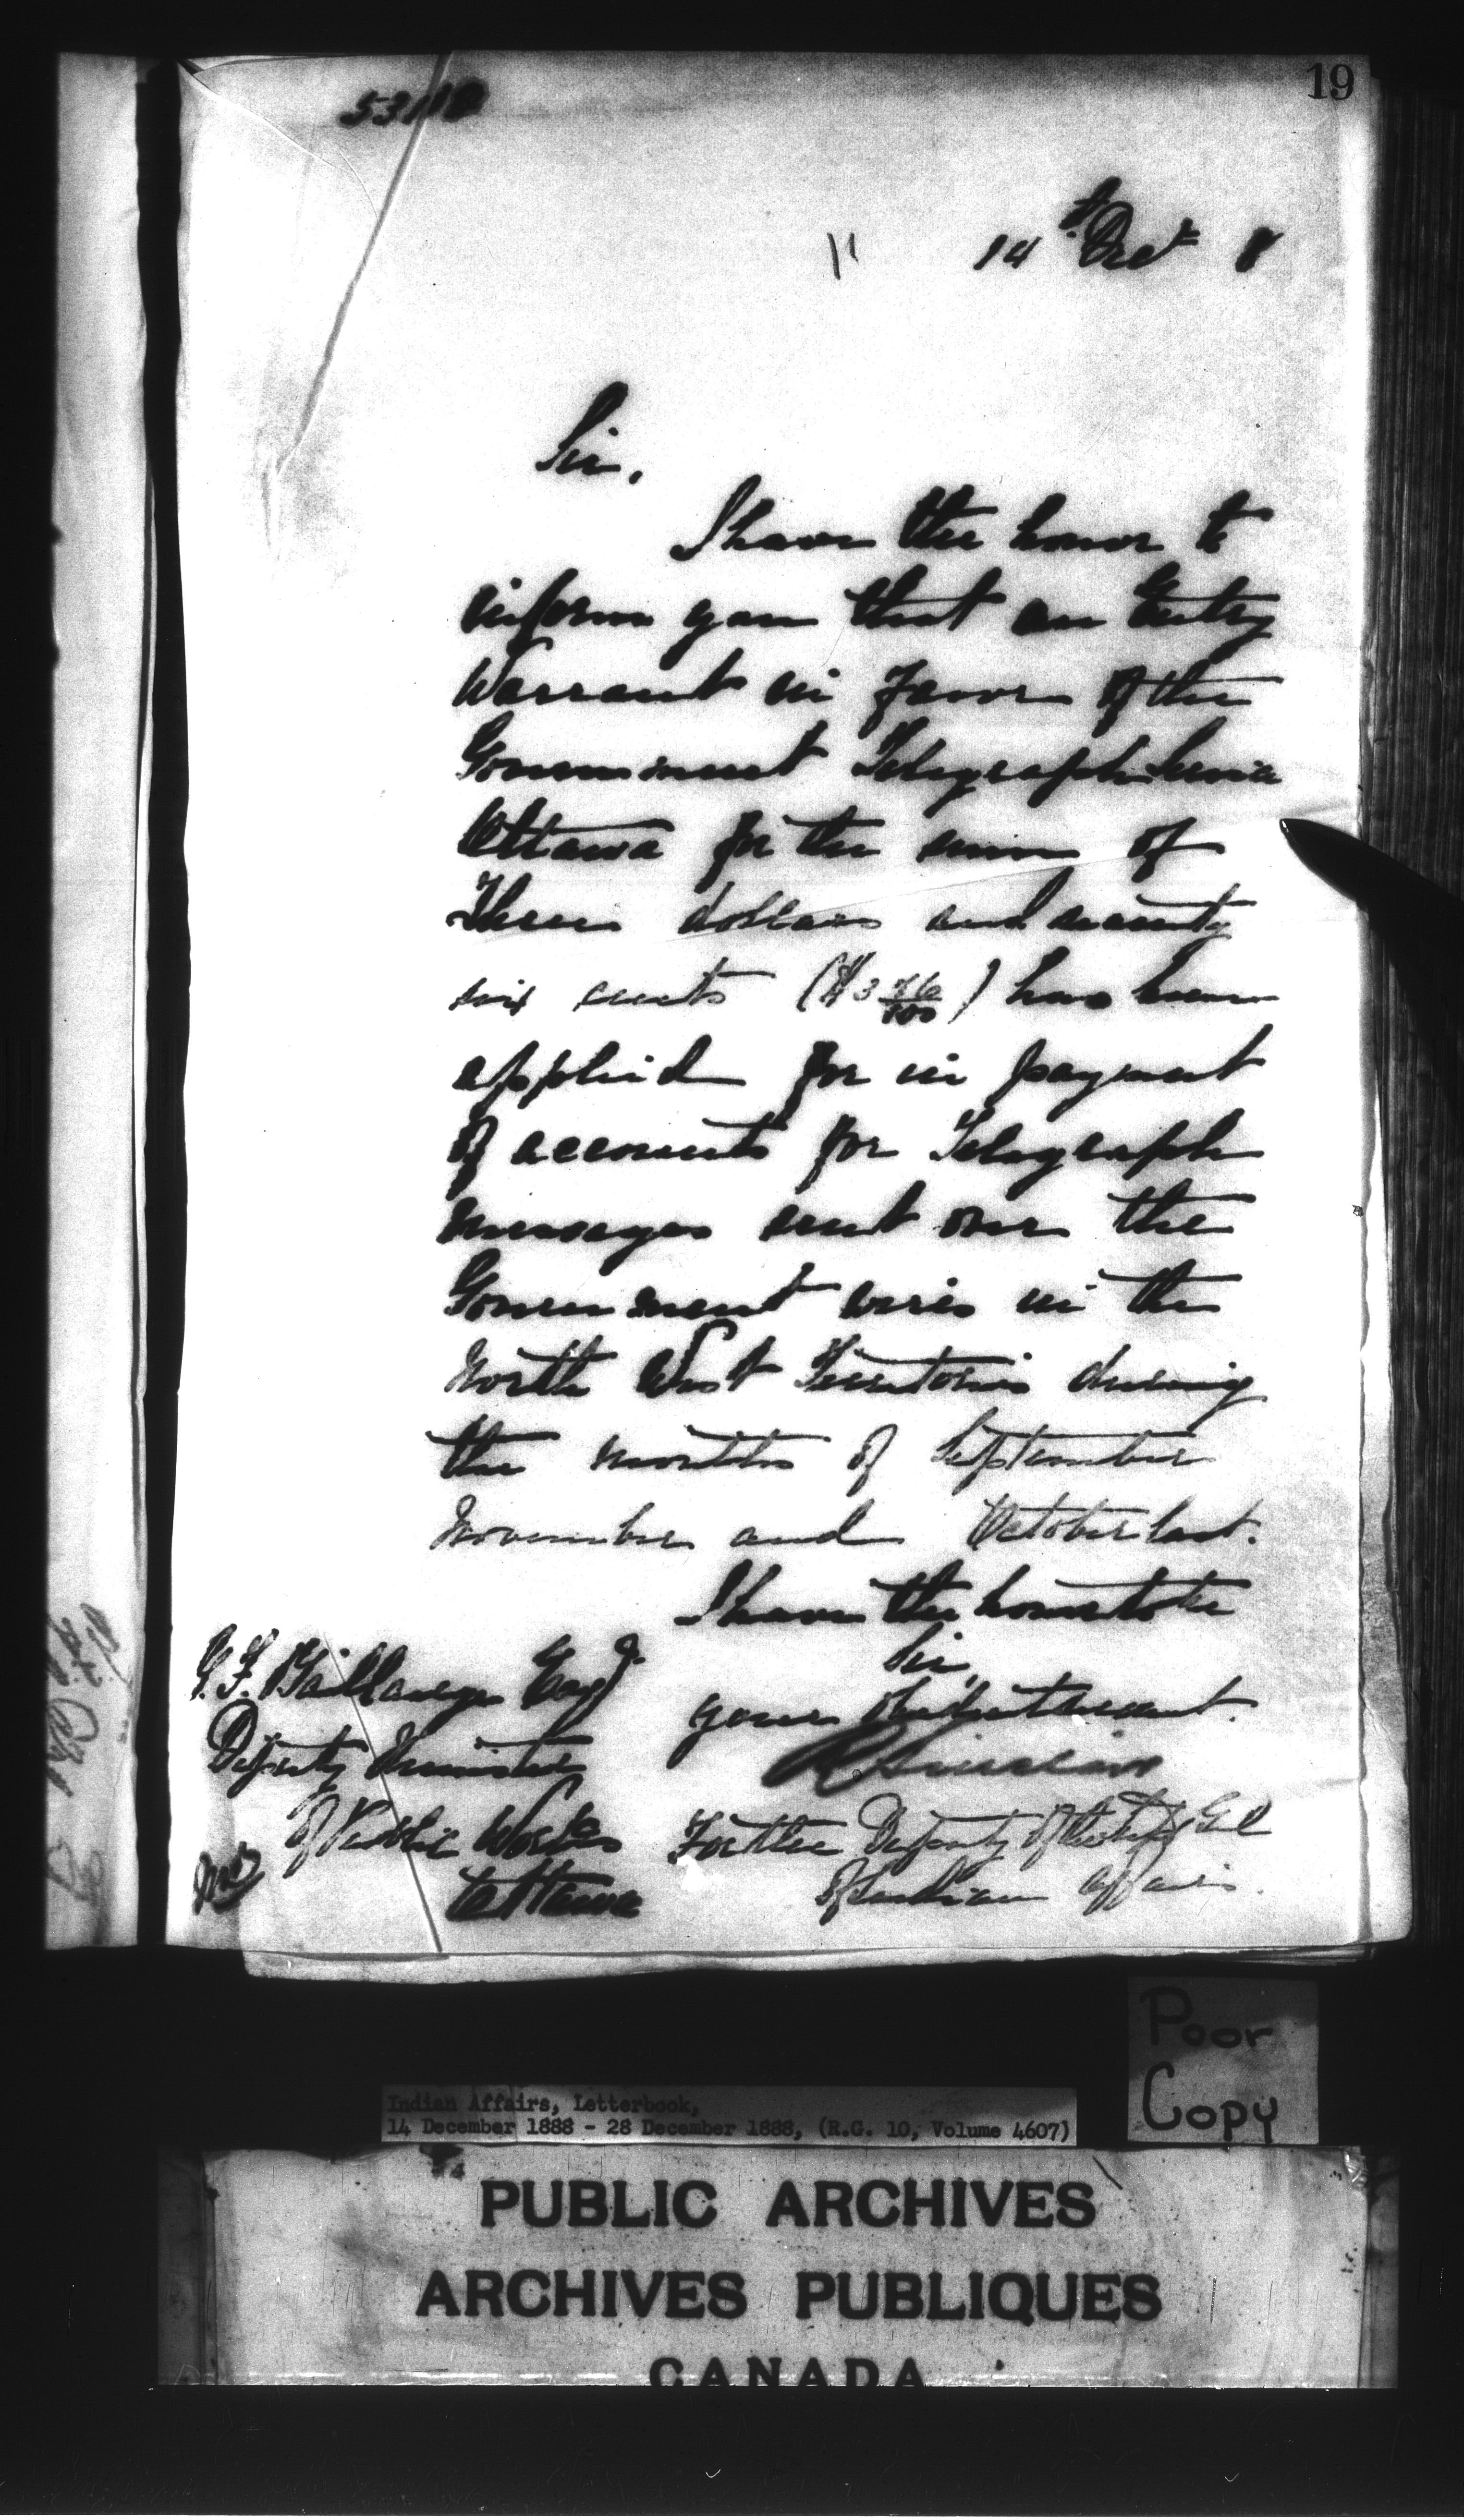 19
14th Decr 8
Sir,
I have the honor to
inform you that an Entry
Warrant in favor of the
Government Telegraph Service
Ottawa for the sum of
Three dollars and seventy
six cents ($3 76/100) has been
applied for in payment
of accounts for Telegraph
messages sent over the
Government wires in the
North West Territories during
the months of September
November and October last.
I have the honor to be
Sir,
your obedient servant.
R Sinclair
For the Deputy of the Supt Genl
of Indian Affairs.
G. F. Baillairge Esqr
Deputy Minister
of Public Works
Ottawa
Poor
Copy
Indian Affairs, Letterbook,
14 December 1888 - 28 December 1888, (R.G. 10, Volume 4607)
PUBLIC ARCHIVES
ARCHIVES PUBLIQUES
CANADA